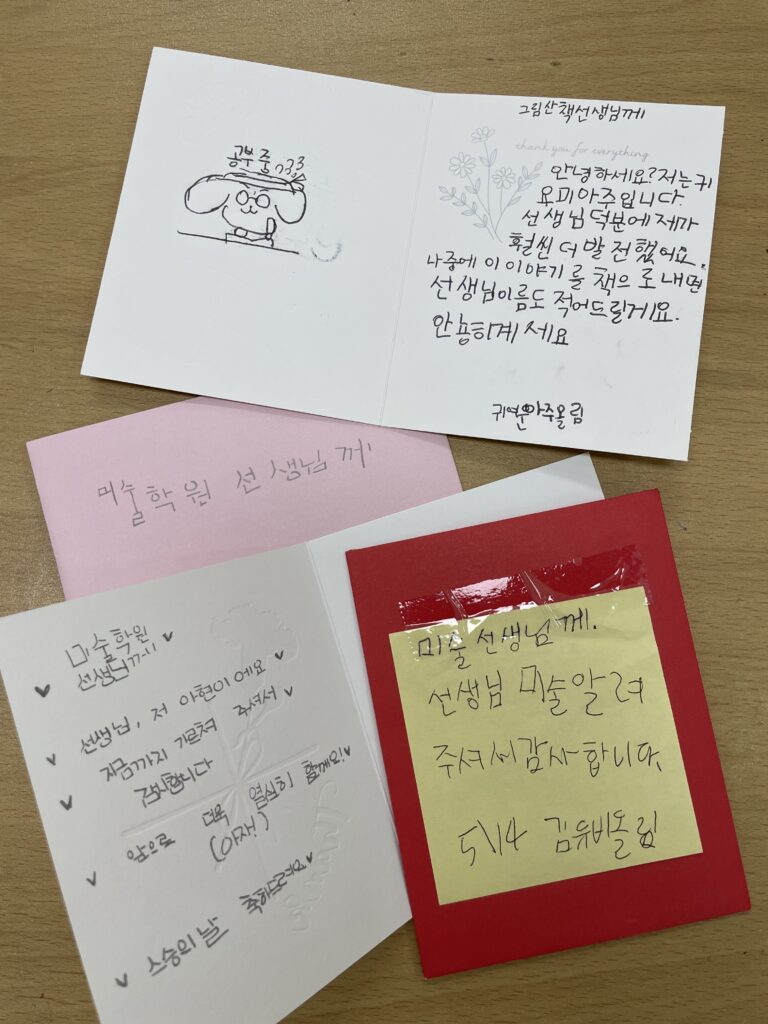 공부 중
그림산책선생님께
thank you for everything
안녕하세요? 저는귀
요미아주입니다.
선생님덕분에 제가
훨씬 더 발전했어요.
나중에 이 이야기를 책으로 내면
선생님이름도 적어드릴게요.
안뇽하계세요
아주올림
미술학원 선생님께
미술학원
선생님께
선생님, 저 아현이에요
지금까지 가르쳐 주셔서
감사합니다
앞으로 더욱 열심히 할께요!
스승의날 축하드려요
미술선생님께.
선생님 미술알려
주셔서감사합니다.
5\14 김유비올림